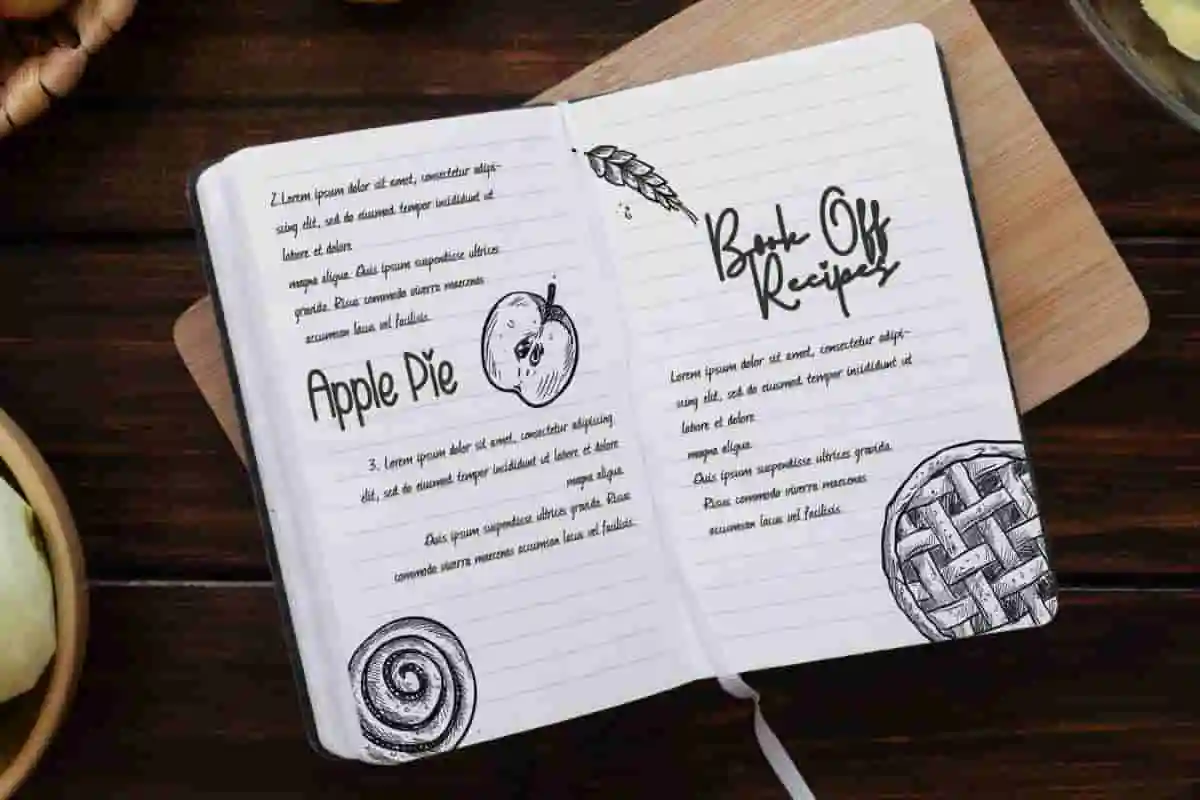 2. Lorem ipsum dolor sit amet, consectetur adipi-
scing elit, sed do eiusmod tempor incididunt ut
labore et dolore
magna aliqua. Quis ipsum suspendisse ultrices
gravida. Risus commodo viverra maecenas
accumsan lacus vel facilisis.
Apple Pie
3. Lorem ipsum dolor sit amet, consectetur adipiscing
elit, sed do eiusmod tempor incididunt ut labore et dolore
magna aliqua.
Quis ipsum suspendisse ultrices gravida. Risus
commodo viverra maecenas accumsan lacus vel facilisis.
Book Off
Recipes
Lorem ipsum dolor sit amet, consectetur adipi-
scing elit, sed do eiusmod tempor incididunt ut
labore et dolore
magna aliqua.
Quis ipsum suspendisse ultrices gravida.
Risus commodo viverra maecenas
accumsan lacus vel facilisis.